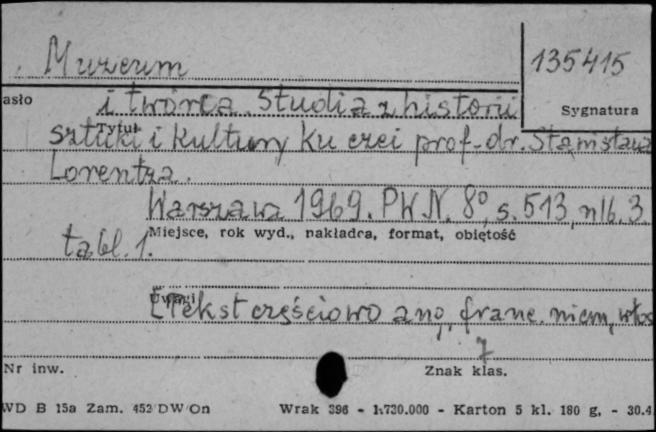 Muzeum
135415
asło
i twórca. Studia z historii
Sygnatura
Tytuł
sztuki i kultury ku czci prof. dr. Stanisława
Lorentza.
Warszawa 1969. PWN. 8°, s. 513, nlb. 3.
Miejsce, rok wyd., nakładca, format, objętość
tabl. 1.
Uwagi
[Tekst częściowo ang., franc. niem., włos
7
Nr inw.
Znak klas.
WD B 15a Zam. 452/DW/On
Wrak 396 - 1.730.000 - Karton 5 kl. 180 g. - 30.4